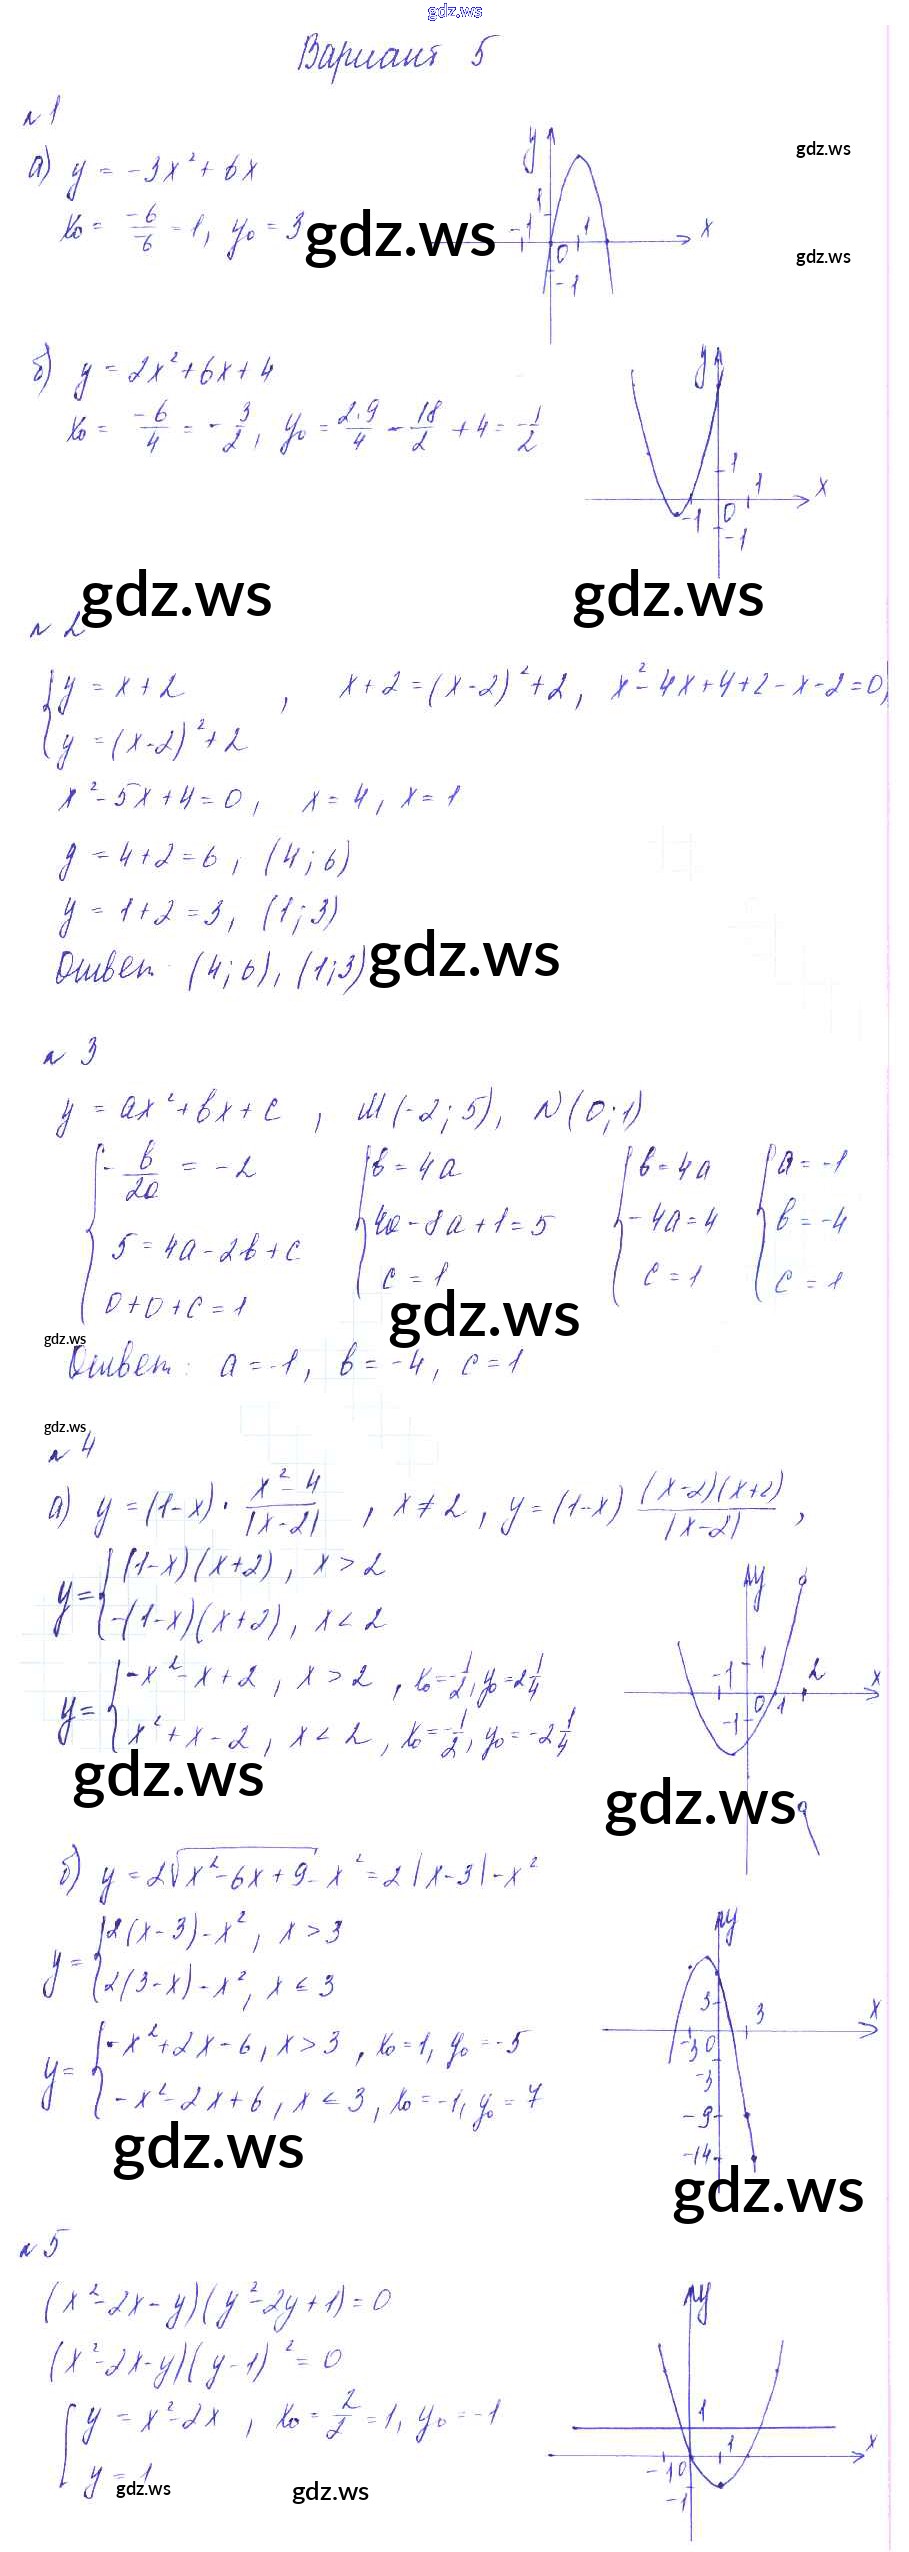 gdz.ws
Вариант 5
№1
а) y = -3x² + 6x
gdz.ws
x₀ = -6/-6 = 1, y₀ = 3
gdz.ws
gdz.ws
y
1
-1 0 1 x
-1
б) y = 2x² + 6x + 4
x₀ = -6/4 = -3/2, y₀ = 2·9/4 - 18/2 + 4 = -1/2
y
1
-1 0 1 x
-1
gdz.ws gdz.ws
№2
{ y = x + 2 , x + 2 = (x-2)² + 2, x² - 4x + 4 + 2 - x - 2 = 0,
y = (x-2)² + 2
x² - 5x + 4 = 0, x = 4, x = 1
y = 4 + 2 = 6, (4; 6)
y = 1 + 2 = 3, (1; 3)
gdz.ws
Ответ: (4; 6), (1; 3)
№3
y = ax² + bx + c, M(-2; 5), N(0; 1)
{ -b/2a = -2 { b = 4a { b = 4a { a = -1
5 = 4a - 2b + c 4a - 8a + 1 = 5 -4a = 4 b = -4
0 + 0 + c = 1 c = 1 c = 1 c = 1
gdz.ws
gdz.ws
Ответ: a = -1, b = -4, c = 1
gdz.ws
№4
а) y = (1-x) · x²-4/|x-2| , x ≠ 2, y = (1-x) (x-2)(x+2)/|x-2| ,
y = { (1-x)(x+2), x > 2
-(1-x)(x+2), x < 2
y = { -x² - x + 2, x > 2, x₀ = -1/2, y₀ = 2 1/4
x² + x - 2, x < 2, x₀ = -1/2, y₀ = -2 1/4
y
1 2
-1 0 1 x
-1
gdz.ws gdz.ws
б) y = 2√x² - 6x + 9 - x² = 2|x-3| - x²
y = { 2(x-3) - x², x > 3
2(3-x) - x², x ≤ 3
y = { -x² + 2x - 6, x > 3, x₀ = 1, y₀ = -5
-x² - 2x + 6, x ≤ 3, x₀ = -1, y₀ = 7
y
3 3 x
-3 0
-3
-9
-14
gdz.ws gdz.ws
№5
(x² - 2x - y)(y² - 2y + 1) = 0
(x² - 2x - y)(y - 1)² = 0
[ y = x² - 2x, x₀ = 2/2 = 1, y₀ = -1
y = 1
y
1
-1 0 1 x
-1
gdz.ws gdz.ws